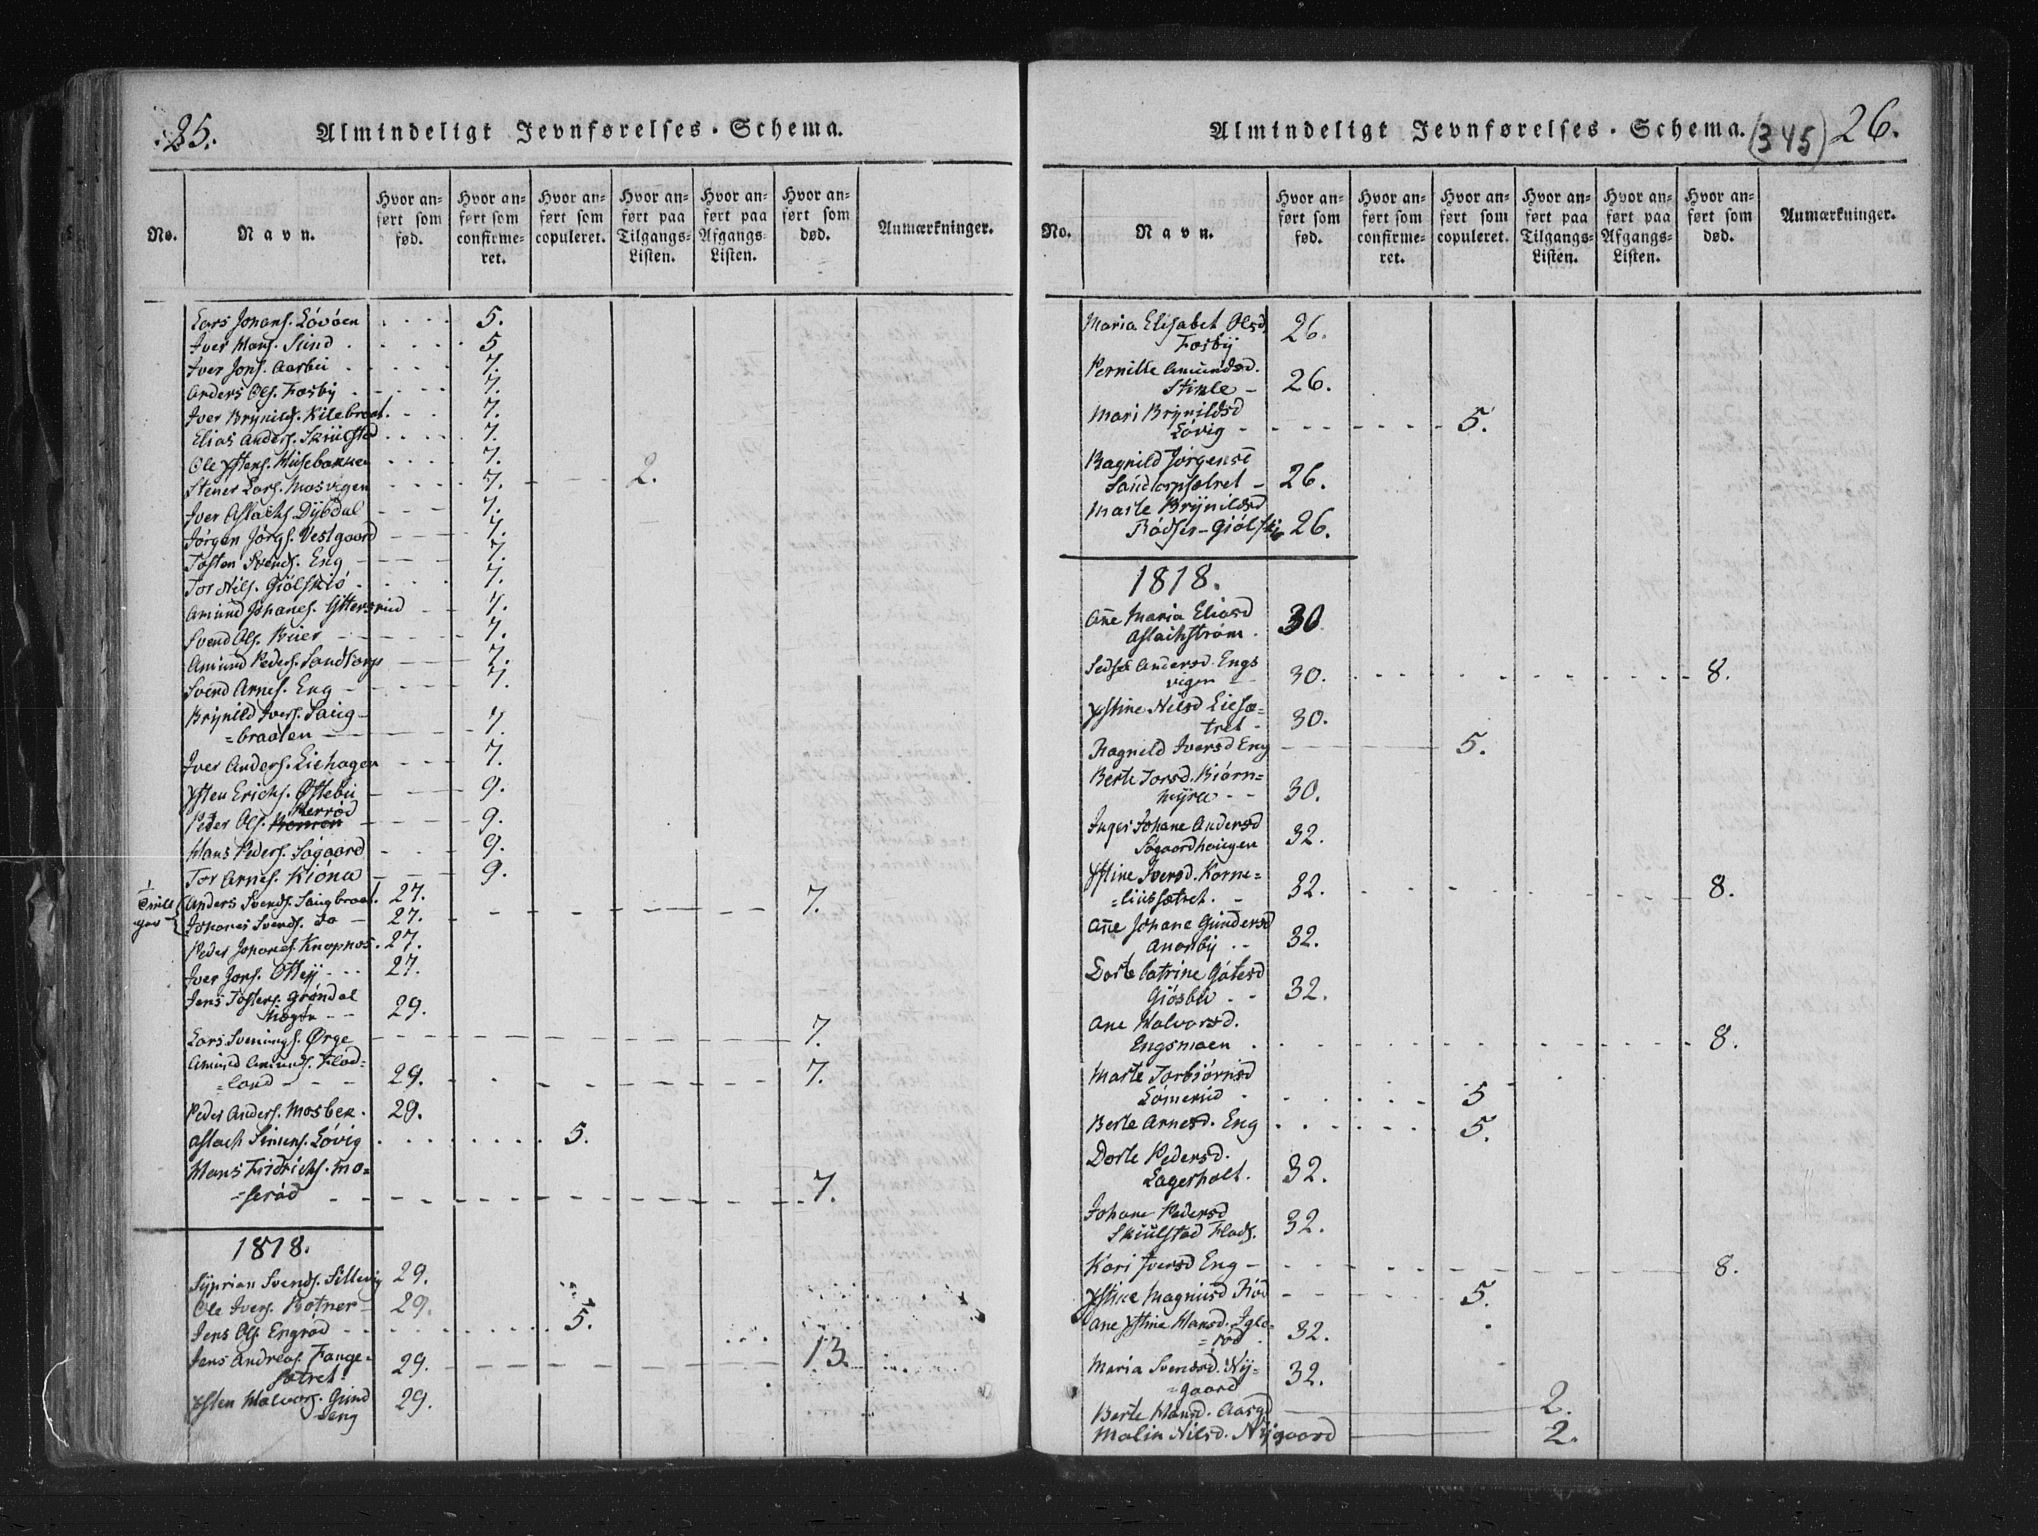 25.
Almindeligt Jevnførelses-Schema.
No.
Navn.
Hvor anført som fød.
Hvor anført som confirmeret.
Hvor anført som copuleret.
Hvor anført paa Tilgangs-Listen.
Hvor anført paa Afgangs-Listen.
Hvor anført som død.
Anmærkninger.
Lars Johans. Lövöen . . . . 5.
Iver Hans. Sund . . . . 5
Iver Jons. Aarbu . . . . 7.
Anders Ols. Fosby . - - - 7.
Iver Brynilds. Kilebraat. . . . 7.
Elias Anders. Skiulstad . . . . 7.
Ole Ystens. Husebakken . . . . 7.
Stener Lars. Mosvigen - - - - 7. - - - 2.
Iver Aslachs. Dybdal - - - 7.
Jørgen Jörgs. Vestgaard - - - 7.
Tosten Svends. Eng - - - 7.
Tor Nils. Giölskiö . . . . 7.
Amund Johanes. Yttersrud - - 7.
Svend Ols. Buer - - - 7.
Amund Peders. Sandtorp - - - 7.
Svend Arnes. Eng - - - 7.
Brynild Ivers. Saug-
=braaten - - - 7.
Iver Anders. Liehagen - - - 7.
Ysten Erichs. Østebu - - - 9.
Herröd
Peder Ols. - - - 9.
Hans Peders. Sogaard - . . . 9.
Tor Arnes. Kiöna - - - 9.
Tvillgar
Anders Svends. Saugbraat. 27. 7.
Johanes Svends. do - 27. - - - - -
Peder Johanes. Knapnos. 27.
Iver Jons. Ottey - - - 27.
Jens Tostens. Gröndal
Skogen - - 29.
Lars Svenungs. Ørge - - - - - - 7.
Amund Amunds. Flod-
=land - - - 29. - - - - 7.
Peder Anders. Mosbek . 29.
Aslach Simens. Lövig . . . . . . . . 5.
Hans Fridrichs. Mo=
=seröd - - - - - - - - 7.
1818.
Syprian Svends. Sillevig 29.
Ole Ivers. Rotner - 29.
Jens Ols. Engröd - - . . . . . . . 5.
Jens Andreas. Fange-
sætret. 29. - - - - - - 13.
Ysten Halvors. Gund
=seng 29.
Almindeligt Jevnførelses-Schema.
(345) 26.
No.
Navn.
Hvor anført som fød.
Hvor anført som confirmeret.
Hvor anført som copuleret.
Hvor anført paa Tilgangs-Listen.
Hvor anført paa Afgangs-Listen.
Hvor anført som død.
Anmærkninger.
Maria Elisabet Olsd.
Fosby 26.
Pernille Amundsd.
Stikle - 26.
Mari Brynildsd
Lövig - - - - - - - - 5.
Ragnild Jörgensd
Sandtorpsætret - 26.
Marte Brynildsd
Rödset - Giölskiö 26.
1818.
Ane Maria Eliasd
Aslachström . 30
Sedsel Andersd. Engs
vigen - - 30. . . . . . . . . 8.
Ystine Nilsd Liesæ=
tret - 30.
Ragnild Iversd Eng - - - - - 5.
Berte Torsd. Biörn=
myra - - 30.
Inger Johane Andersd
Sogaardhaugen 32.
Ystine Iversd. Korne=
=liussætret. - 32. . - - - - - - 8.
Ane Johane Gundersd
Ananby - - 32.
Dorte Catrine Götesd
Giösbu - - 32.
Ane Halvorsd.
Engsmoen . . . . . . . . . . 8.
Marte Torbiörnsd
Lömerud . . . . . . 5
Berte Arnesd. Eng . . . . . . 5.
Dorte Pedersd.
Lagerholt. 32.
Johane Pedersd
Skiulstad Flods. 32.
Kari Iversd Eng - - - - - - - 8.
Ystine Magnusd Röd - - - - - 5.
Ane Ystine Hansd. Igle-
=röd . 32.
Maria Svendsd. Ny-
=gaard 32.
Berte Hansd. Aasgd ——— 2.
Malin Nilsd. Nygaard ——— 2.